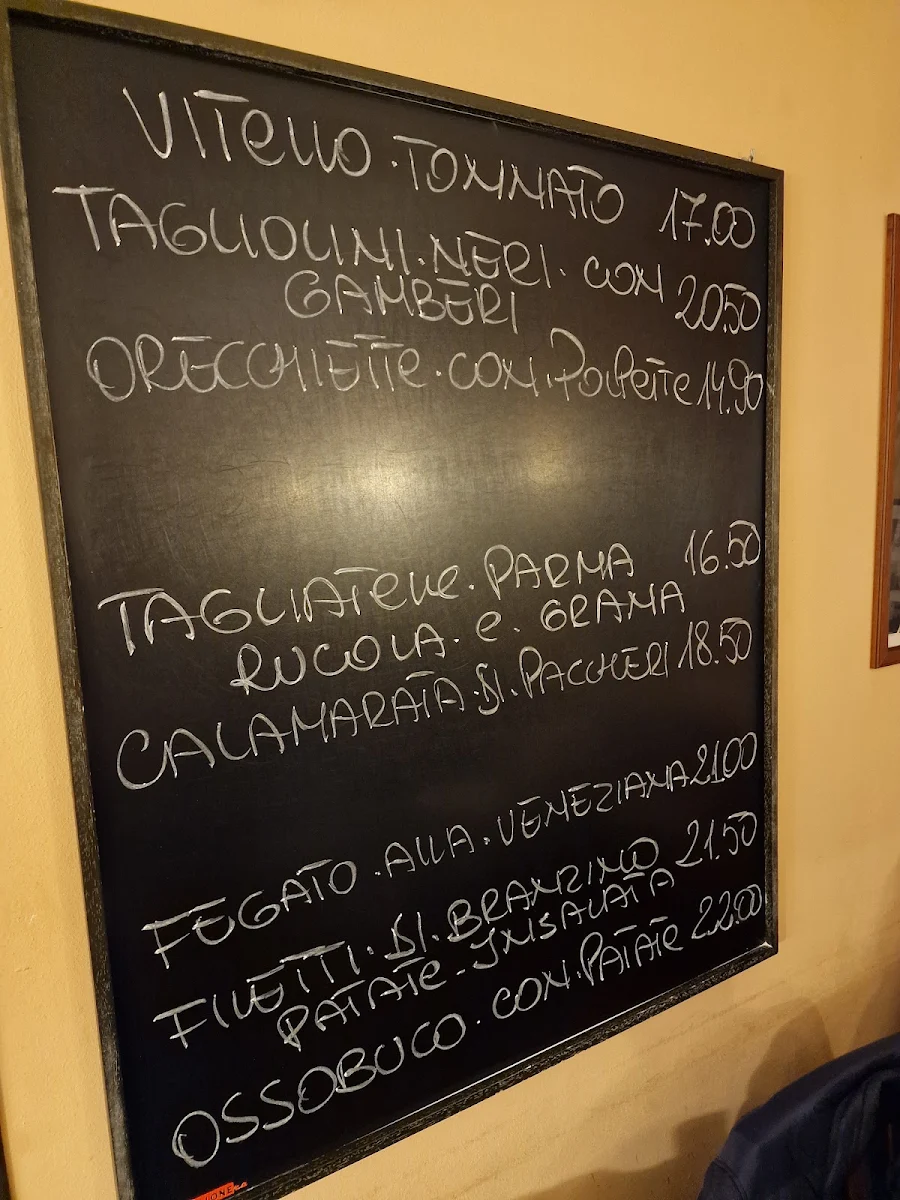 VITELLO.TONNATO 17.00
TAGLIOLINI.NERI.CON
GAMBERI 20.50
ORECCHIETTE.CON.POLPETTE 14.90
TAGLIATELLE.PARMA 16.50
RUCOLA.E.GRANA
CALAMARATA.DI.PACCHERI 18.50
FEGATO.ALLA.VENEZIANA 21.00
FILETTI.DI.BRANZINO 21.50
PATATE-INSALATA
OSSOBUCO.CON.PATATE 22.00